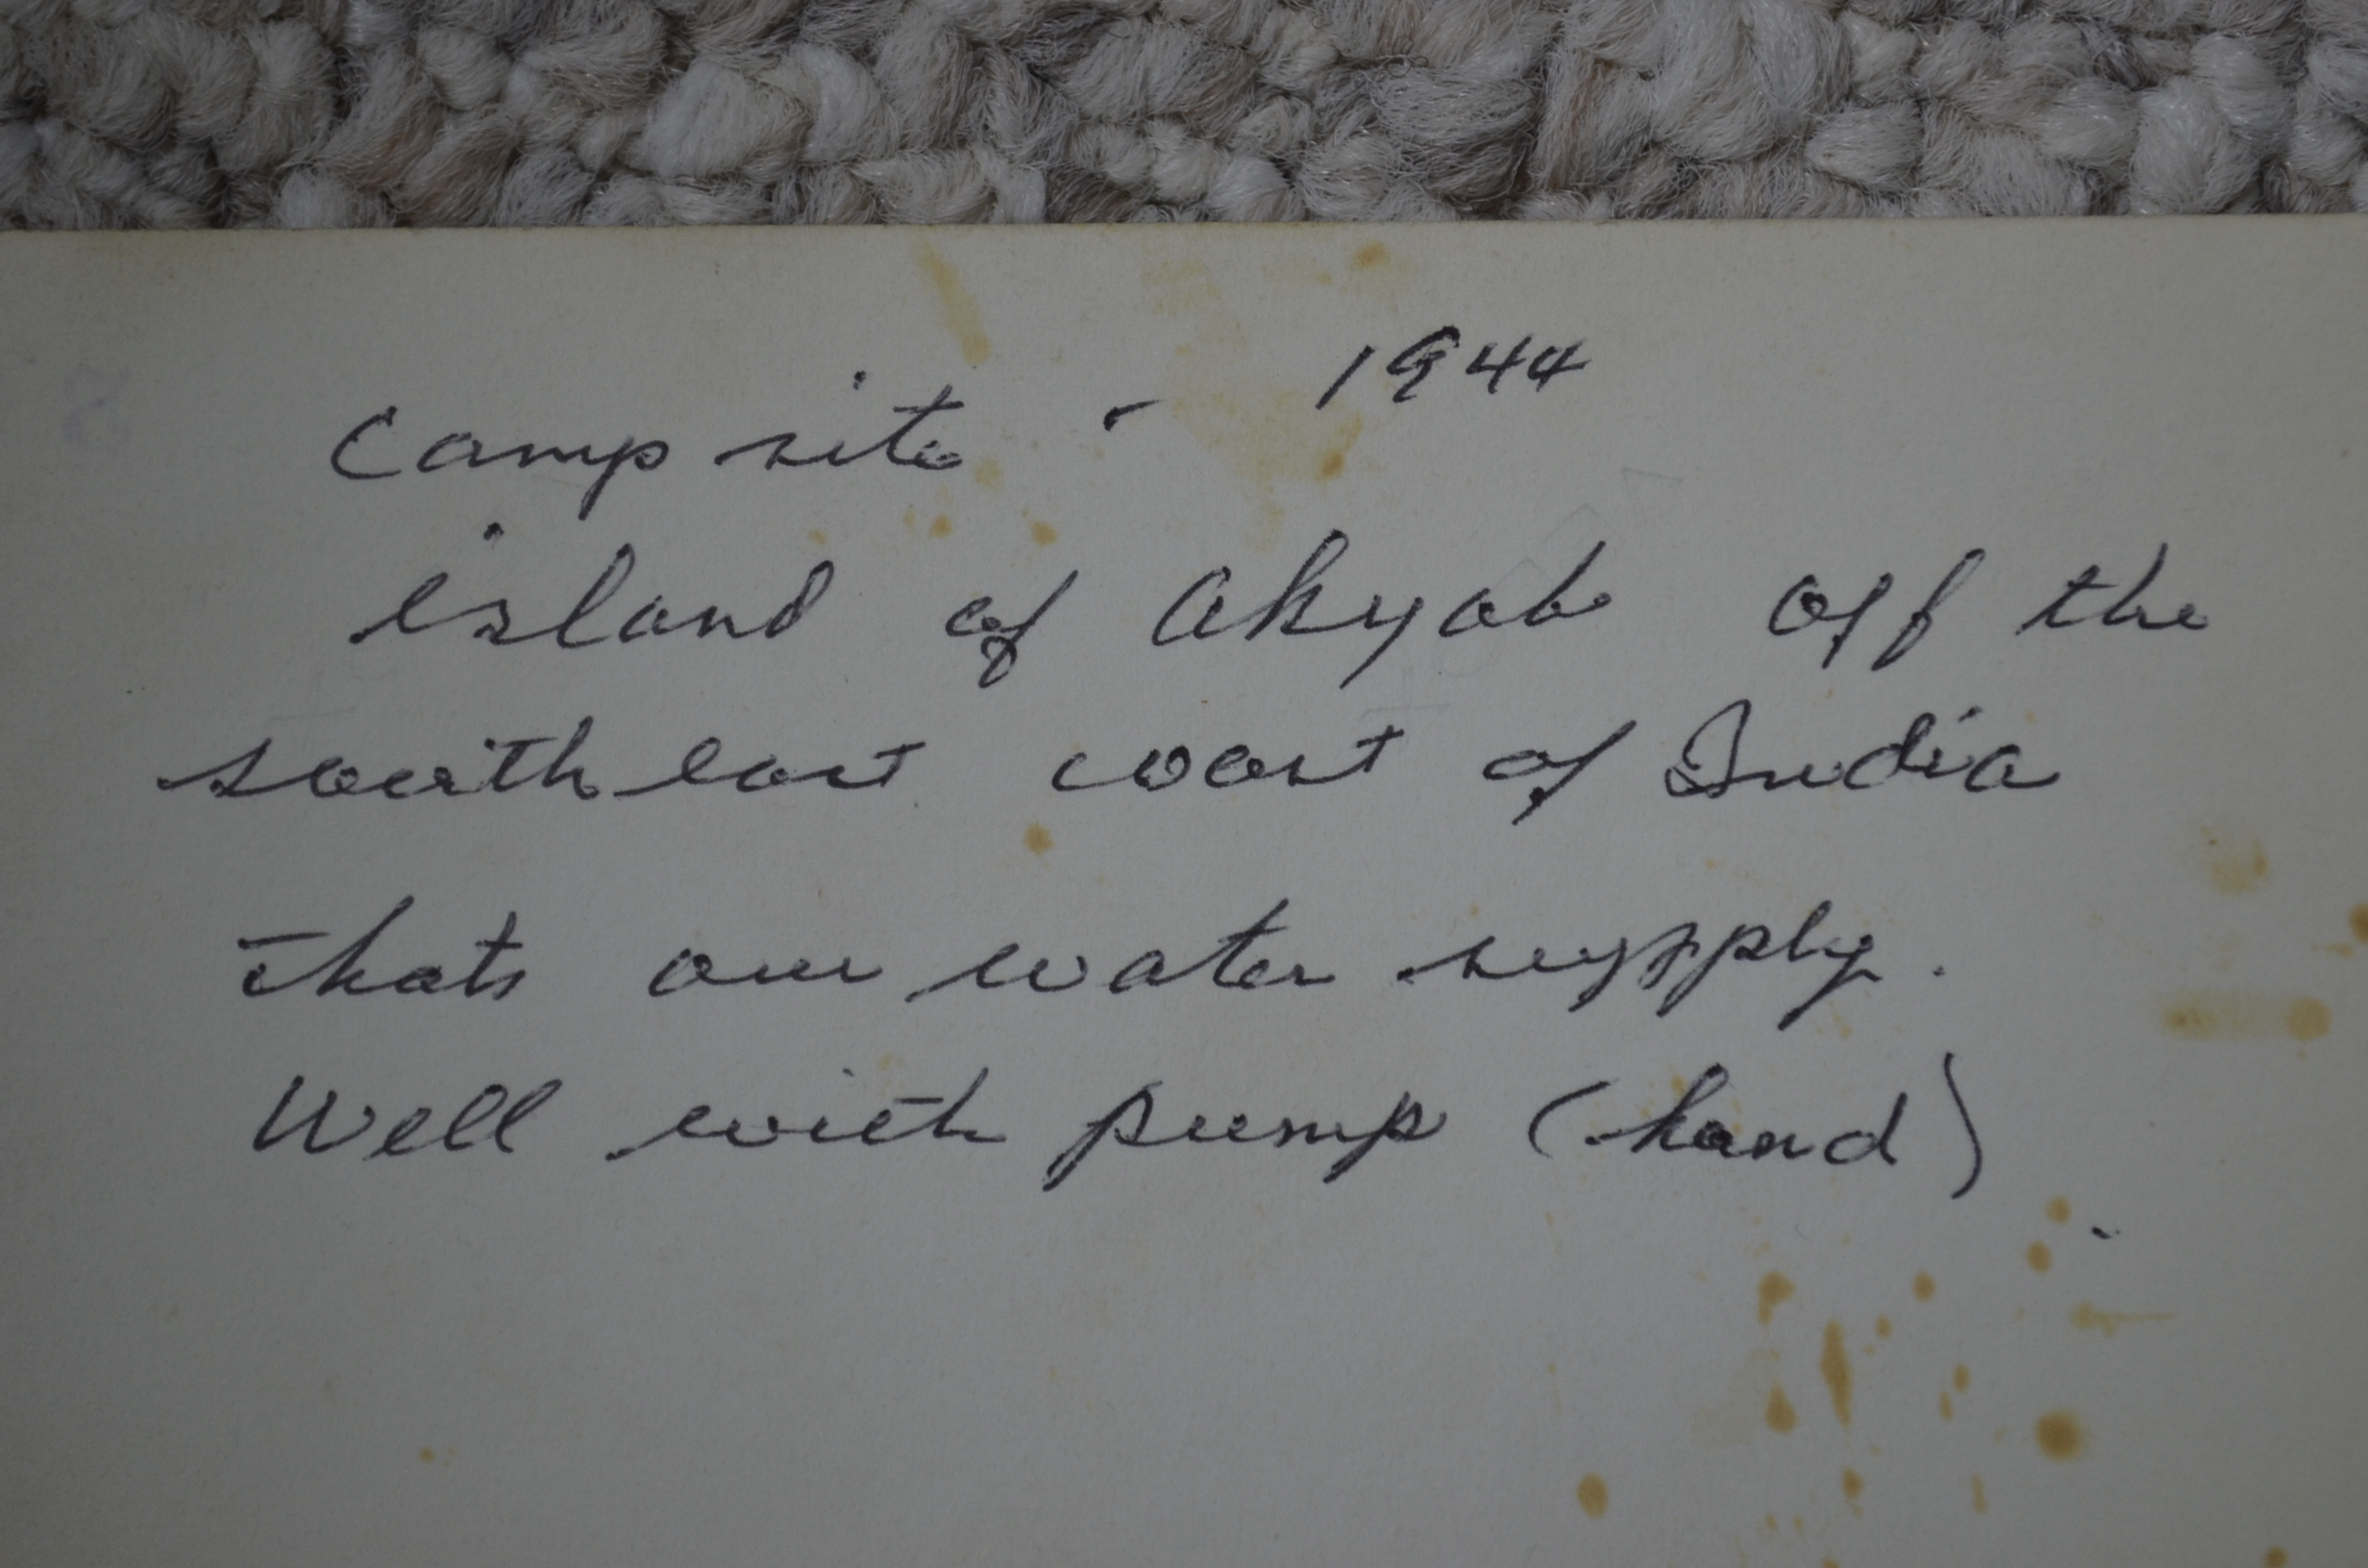 Camp site - 1944
island of Akyab off the
south east coast of India
thats our water supply.
Well with pump (hand).